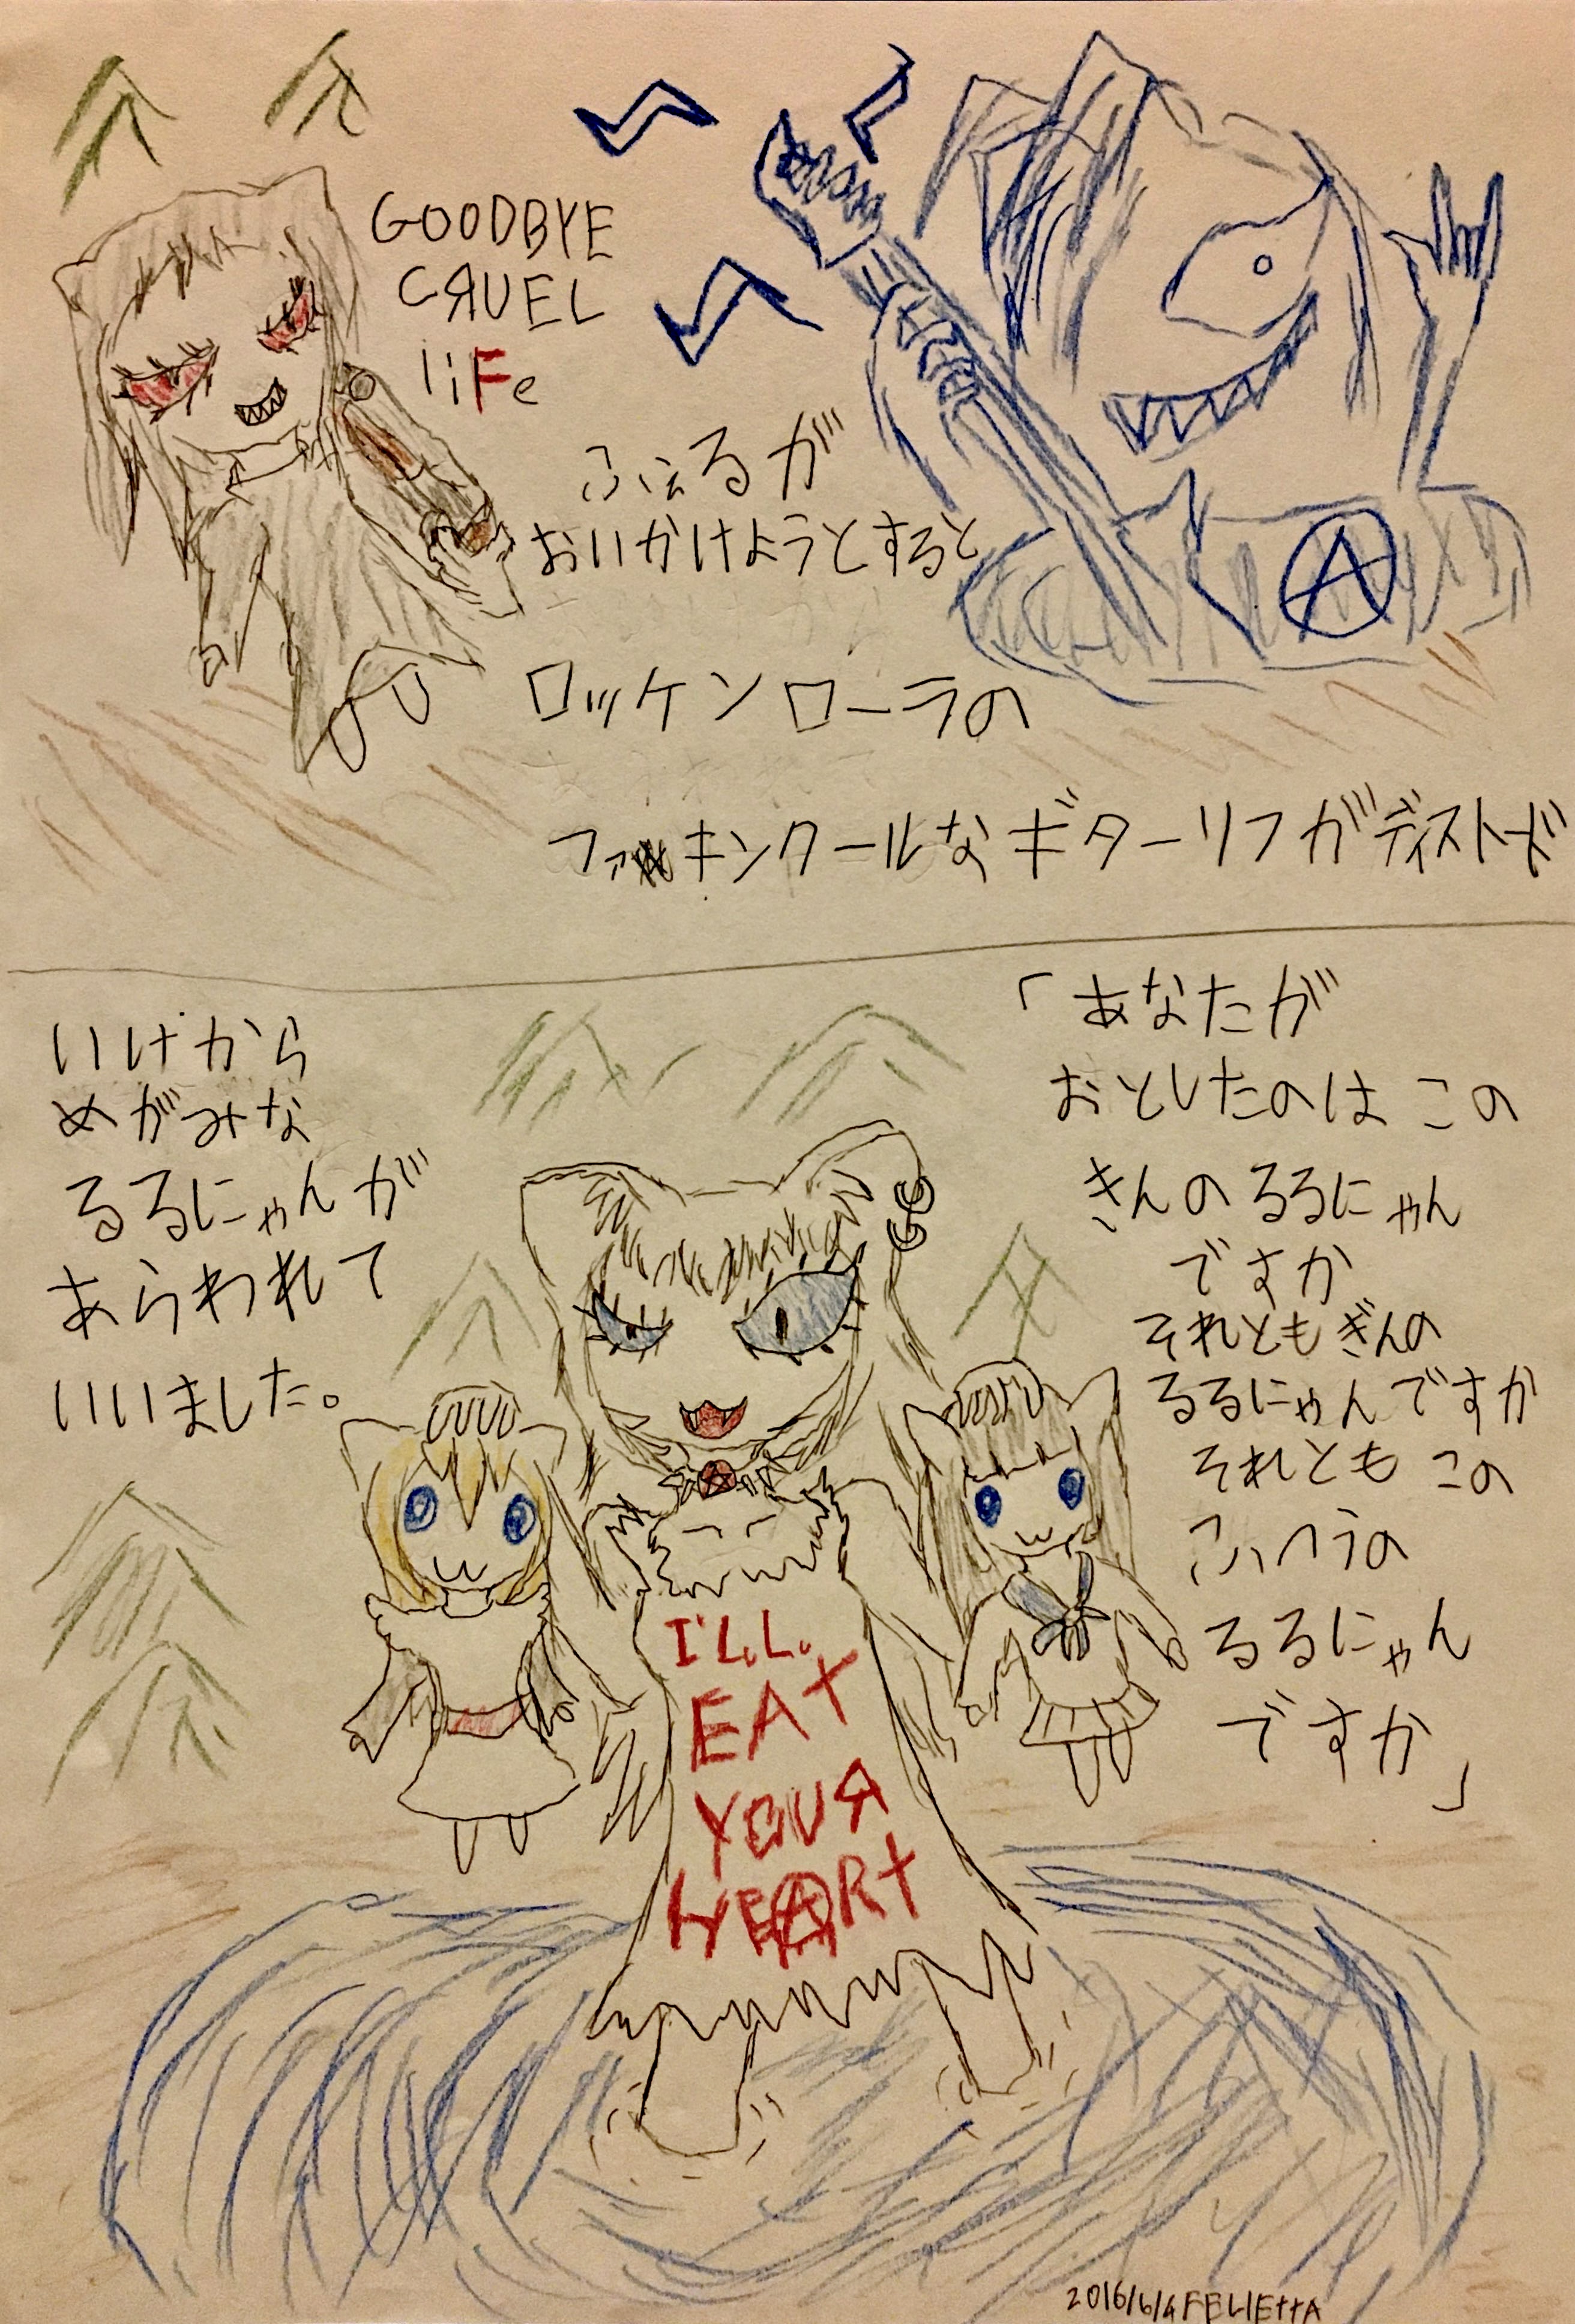 GOODBYE
CЯUEL
liFe
ふぇるが
おいかけようとすると
ロッケンローラの
ファッキンクールなギターリフがディストード
いけから
めがみな
るるにゃんが
あらわれて
いいました。
「あなたが
おとしたのは この
きんのるるにゃん
ですか
それともぎんの
るるにゃんですか
それとも この
ふつうの
るるにゃん
ですか」
I'LL
EAT
YOUЯ
HEART
2016/6/4 FELIEttA